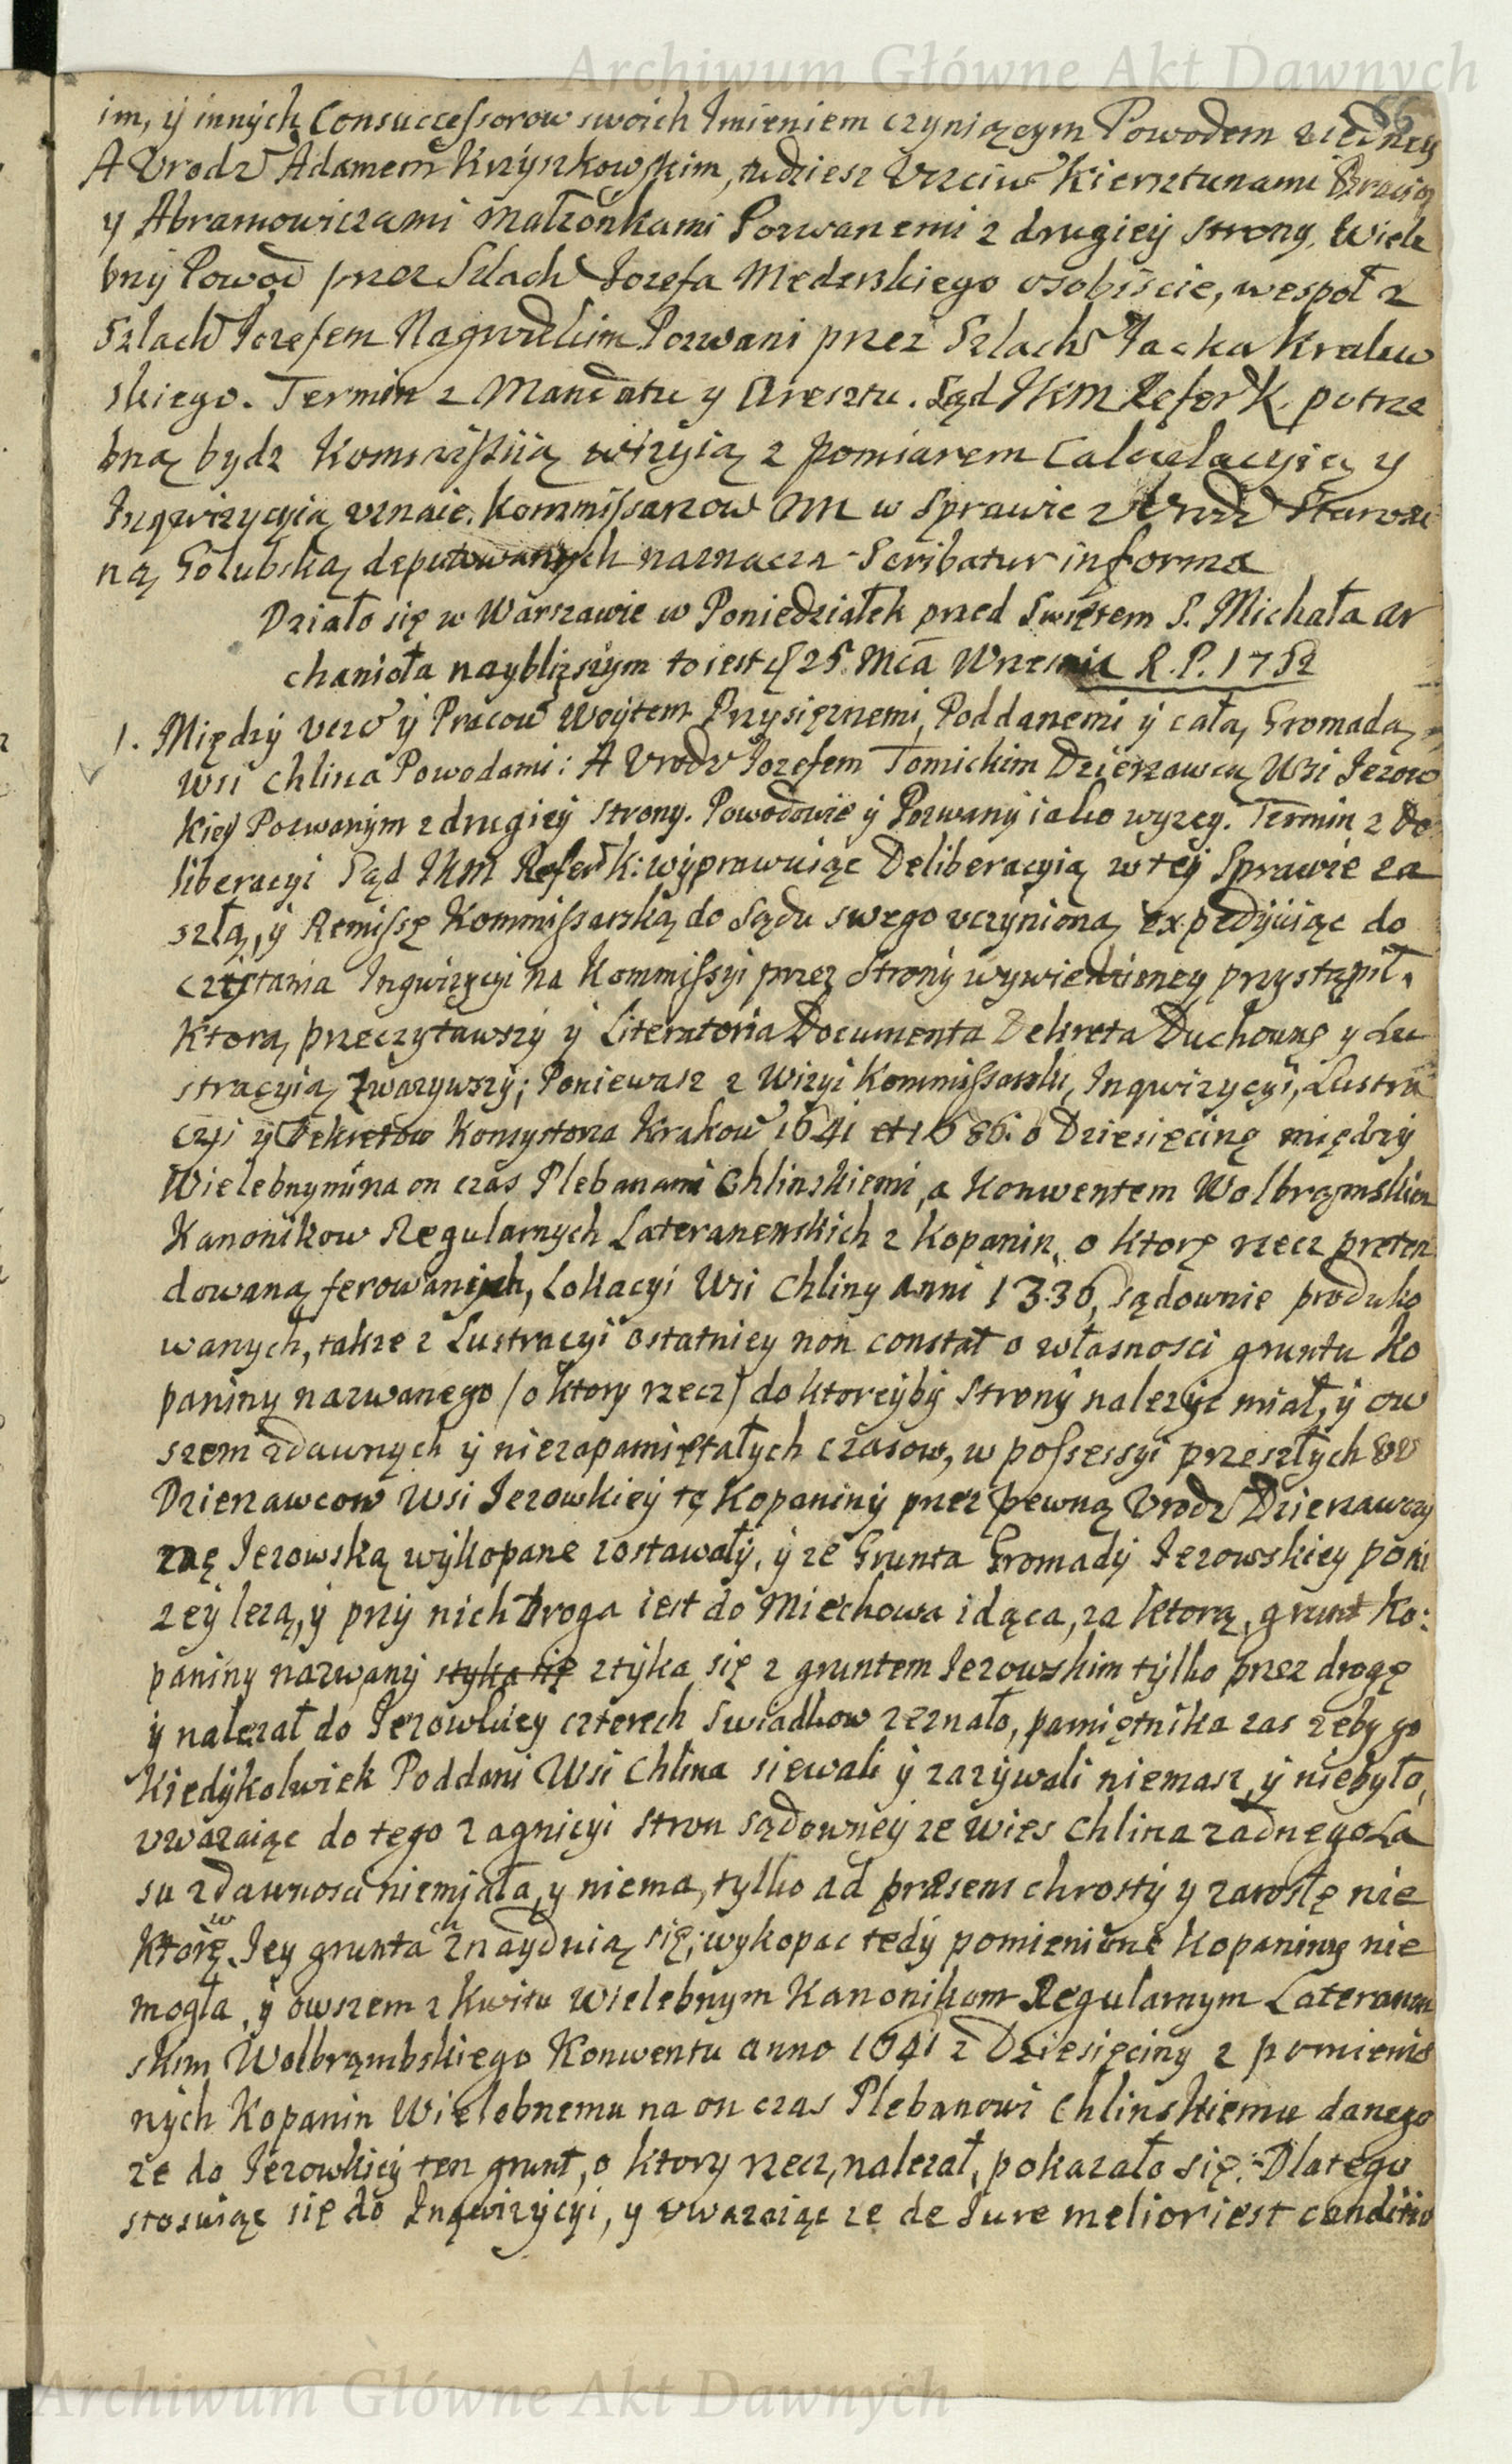 Archiwum Główne Akt Dawnych
66
im, ÿ innÿch Consuccessorow swoich Imieniem czyniącym Powodem z iedney
A Urodz Adamem Krzyszkowskim, tudziesz Uczciw Kiersztunami Bracią
y Abramowiczami Małzonkami Pozwanemi z drugiey strony, Wiele
bny Powod przez Szlach Jozefa Mederskiego osobiscie, wespoł z
Szlach Jozefem Pozwani przez Szlach Jacka Kralew
skiego. Termin z Mandatu y Aresztu. Sąd JKM Refer K. potrze
bną bydz Kommissiią wizyią z pomiarem Calculacyią y
Inqwizycyią uznaie. Kommissarzow M w Sprawie z Urodz Starosci
ną Golubską deputowanych naznacza - Scribatur in forma
Działo się w Warszawie w Poniedziałek przed Swiętem S. Michała Ar
chanioła nayblizszym to iest d 25. Mca Wrzesnia R.P. 1752
1. Międzÿ Ucz ÿ Pracow Woÿtem Przysięznemi, Poddanemi ÿ całą Gromadą
Wsi Chlina Powodami: A Urodz Jozefem Tomickim Dzierzawcą Wsi Jezow
kieÿ Pozwanÿm z drugieÿ strony. Powodowie ÿ Pozwanÿ iako wyzey. Termin z De
liberacyi Sąd JKM Refer K: wÿprawuiąc Deliberacyią w teÿ Sprawie za
szłą, ÿ Remissę Kommissarską do Sądu swego uczÿnioną expedÿiuiąc do
czÿtania Inqwizycyi na Kommissyi przez Stronÿ wywiedzioney przystąpił.
Ktorą przeczytawszÿ ÿ Literatoria Documenta Dekreta Duchowne y Lu
stracyią zwazywszÿ; Poniewasz z Wizyi Kommissarski, Inqwizycyi, Lustra
cÿi ÿ Dekretow Konsystorza Krakow 1641 et 1686. o Dziesięcinę międzÿ
Wielebnymi na on czas Plebanami Chlinskiemi, a Konwentem Wolbramskim
Kanonikow Regularnych Lateranenskich z Kopanin, o ktorę rzecz preten
dowaną ferowanÿch, Lokacyi Wsi Chliny Anni 1336, sądownie produko
wanych, takze z Lustracyi ostatniey non constat o własnosci gruntu Ko
paniny nazwanego /o ktory rzecz/ do ktoreÿbÿ Stronÿ nalezÿc miał, ÿ ow
szem zdawnych ÿ niezapamiętałych czasow, w possessyi przeszłÿch UU
Dzierzawcow Wsi Jezowkieÿ tę Kopaninÿ przez pewną Urodz Dzierzawczy
znę Jezowską wÿkopane zostawałÿ, ÿ ze Grunta Gromadÿ Jezowskiey poni
zeÿ lezą, ÿ przÿ nich Droga iest do Miechowa idąca, za ktorą, grunt Ko:
paniny nazwanÿ styka się ztÿka się z gruntem Jezowskim tÿlko przez drogę
ÿ nalezał do Jezowkiey czterech Swiadkow zeznało, pamiętnika zas zeby go
Kiedÿkolwiek Poddani Wsi Chlina siewali ÿ zazÿwali niemasz, ÿ niebyło,
uwazaiąc do tego z agnicyi stron sądowneÿ ze Wies Chlina zadnego La
su zdawnosci niemiała, y niema, tylko ad præsens chrostÿ y zarosłę nie
ktorę w Jey gruntach znayduią się; wykopac tedÿ pomienione Kopaninę nie
mogła, ÿ owszem z kwitu Wielebnym Kanonikom Regularnym Lateranen
skim Wolbrąmbskiego Konwentu anno 1641 z Dziesięciny z pomienio
nÿch Kopanin Wielebnemu na on czas Plebanowi Chlinskiemu danego
ze do Jezowkieÿ ten grunt, o ktory rzecz, nalezał, pokazało się. Dlatego
stosuiąc się do Inqwizÿcyi, y uwazaiąc ze de Jure melior iest conditio
Archiwum Główne Akt Dawnych